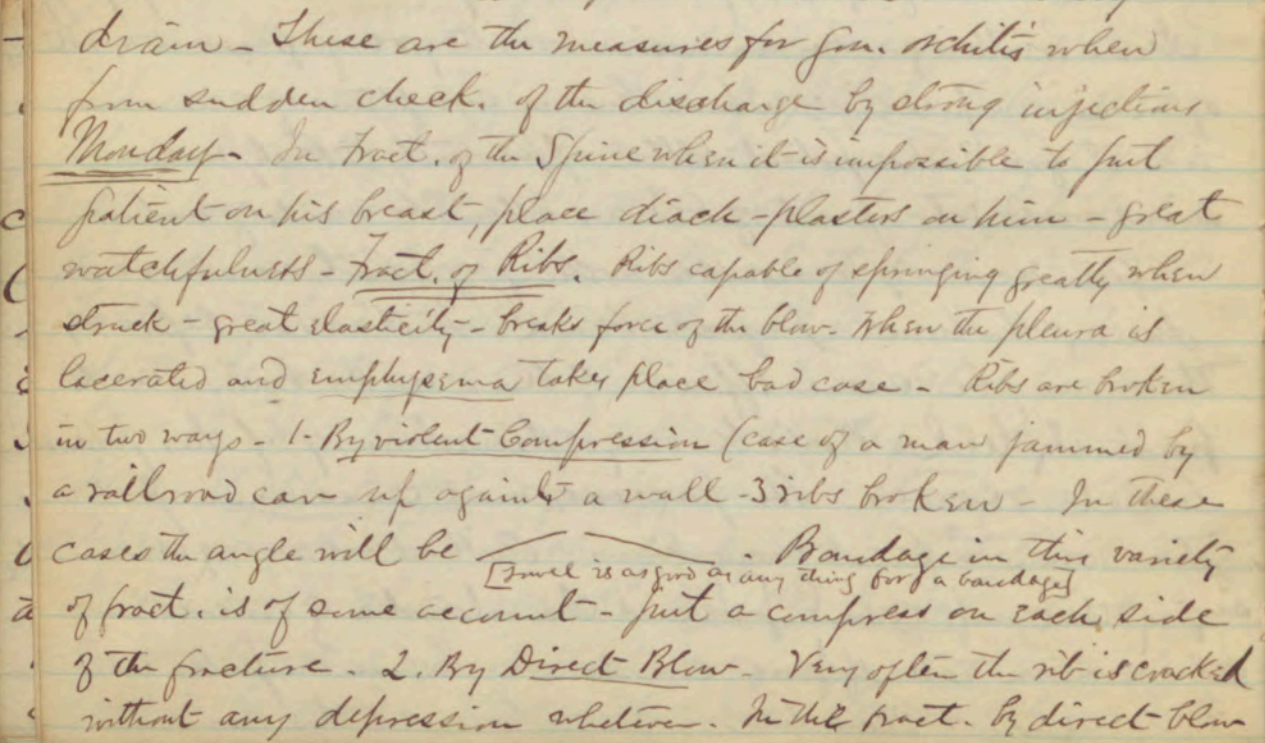 drain - These are the measures for Gon. orchitis when
from sudden check. of the discharge by strong injections
Monday - In Fract. of the Spine when it is impossible to put
patient on his breast, place diach - plasters on him - great
watchfulness - Fract. of Ribs. Ribs capable of springing greatly when
struck - great elasticity - breaks force of the blow. When the pleura is
lacerated and emphysema takes place bad case - Ribs are broken
in two ways - 1 - By violent Compression (case of a man jammed by
a railroad car up against a wall - 3 ribs broken - In these
cases the angle will be . Bandage in this variety
[Towel is as good as any thing for a bandage]
of fract. is of some account - put a compress on each side
of the fracture. 2. By Direct Blow - Very often the rib is cracked
without any depression whatever. In the fract. by direct blow